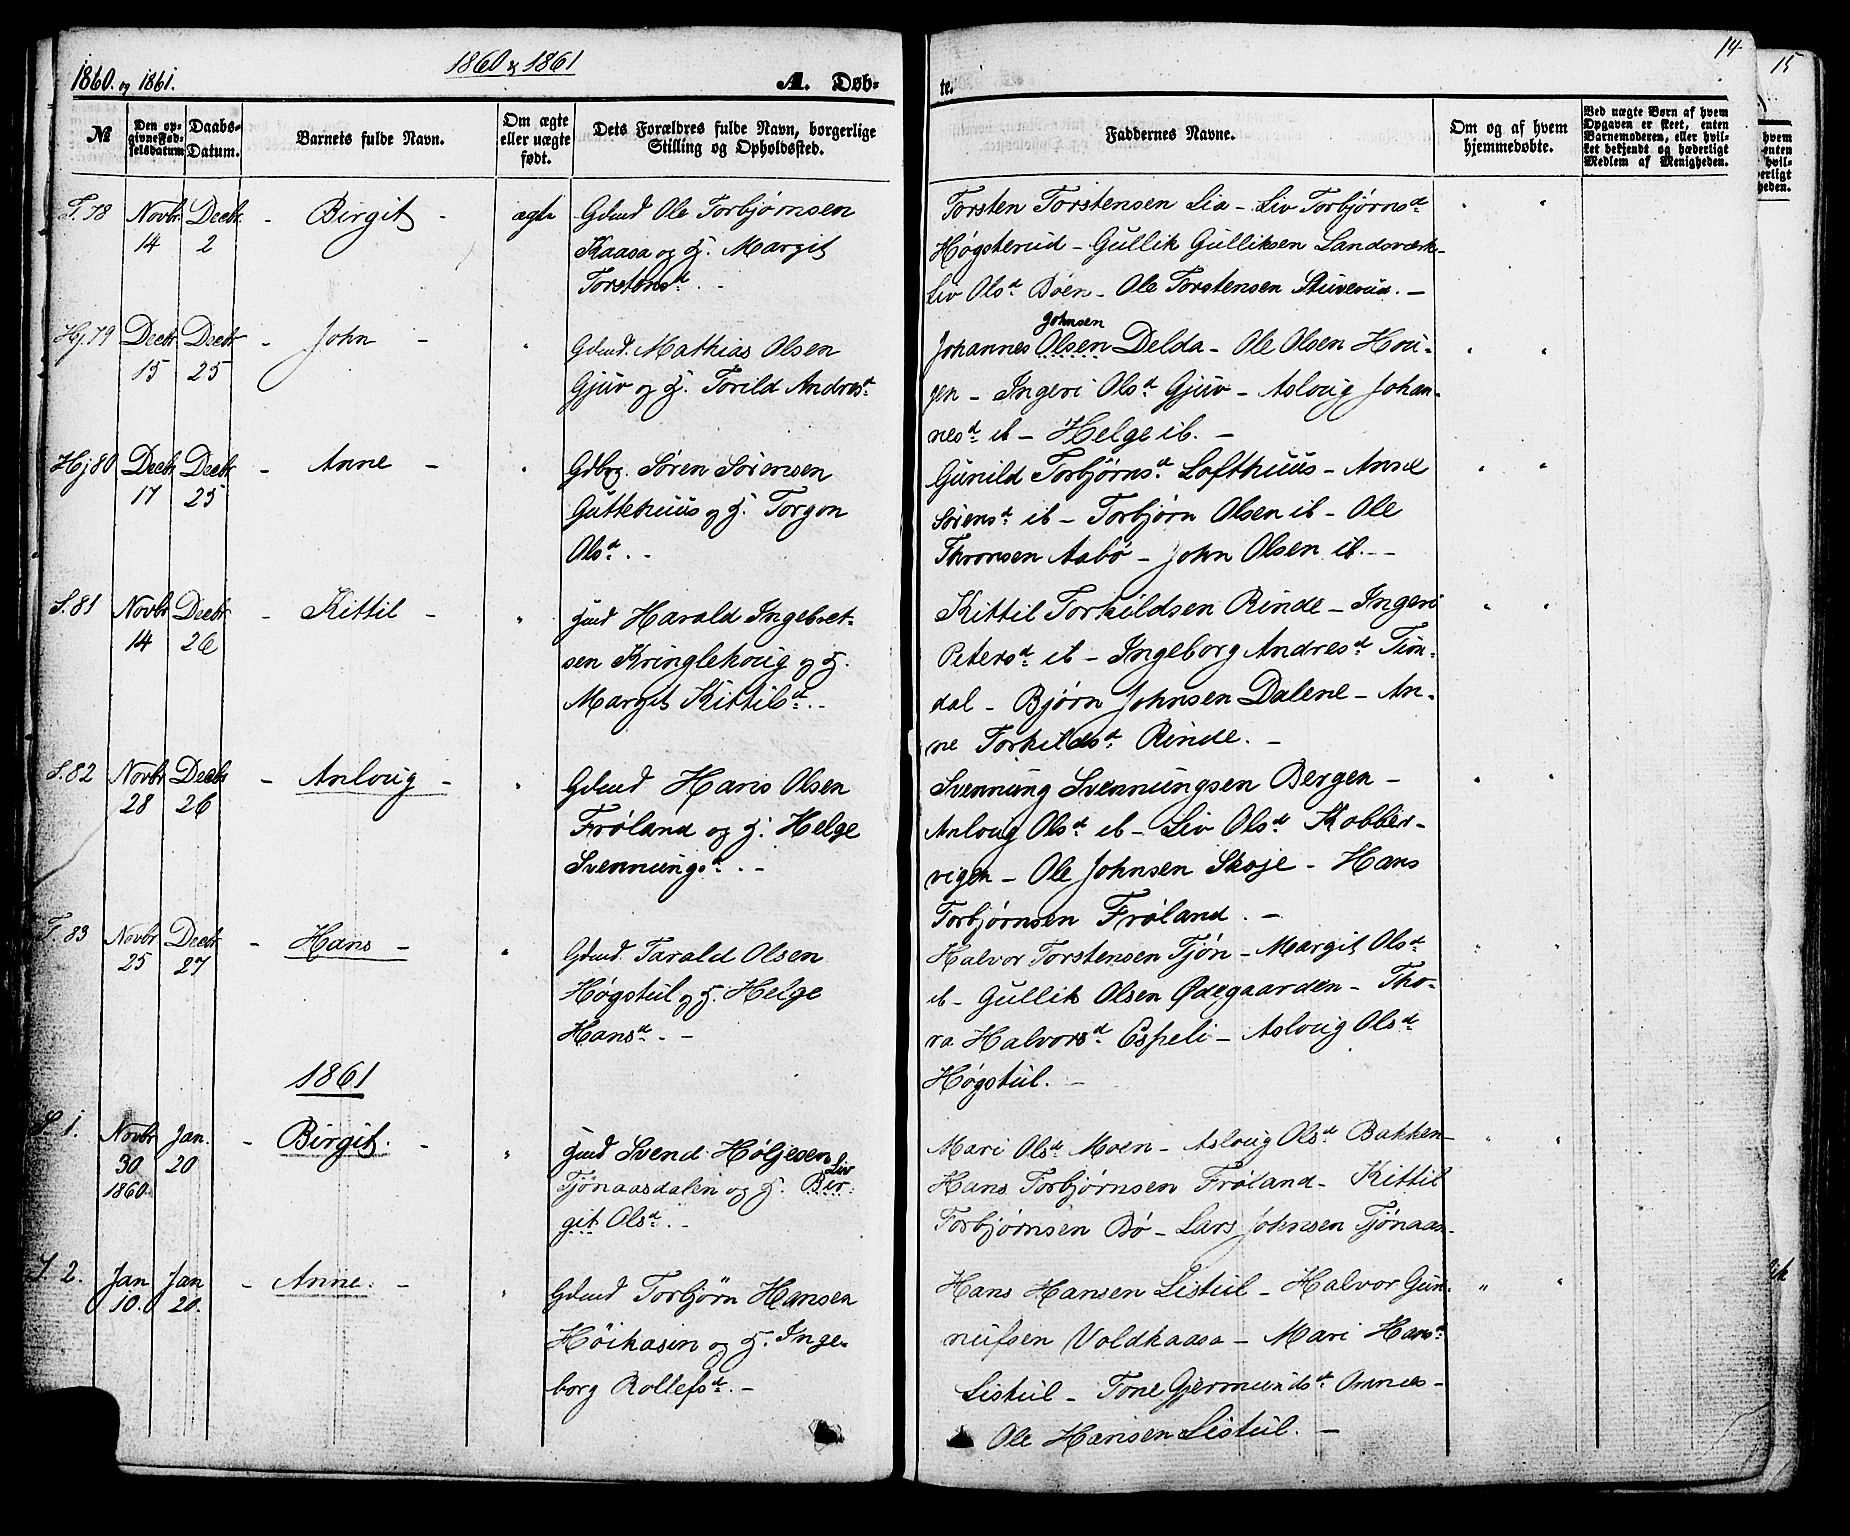 1860 & 1861
14
15
1860. og 1861.
A. Døb-
te.
№
Den op-
givne Fød-
selsdatum
Daabs-
Datum.
Barnets fulde Navn.
Om ægte
eller uægte
født.
Dets Forældres fulde Navn, borgerlige
Stilling og Opholdssted.
Faddernes Navne.
Om og af hvem
hjemmedøbte.
Ved uægte Børn af hvem
Opgaven er skeet, enten
Barnemoderen, eller hvil-
ket bekjendt og hæderligt
Medlem af Menigheden.
T. 78 Novbr 14 Decbr 2 - Birgit - ægte
Gdmd Ole Torbjørnsen
Kaasa og H. Margit
Torstensd. -
Torsten Torstensen Lia - Liv Torbjørnsd
Høgsterud - Gullik Gulliksen Landsværk -
Liv Olsd. Bøen - Ole Torstensen Stuverud. -
Hj. 79 Decbr 15 Decbr 25 - John - "
Gdmd. Mathias Olsen
Gjuv og H. Torild Andresd.
Johnsen
Johannes Olsen Delda - Ole Olsen Hou-
gen - Ingeri Olsd. Gjuv - Asloug Johan-
nesd. ib - Helge ib. -
Hj 80 Decbr 17 Decbr 25 - Anne - "
Gdbrg. Søren Sørensen
Guttehuus og H. Torgon
Olsd. -
Gunild Torbjørnsd. Lofthuus - Anne
Sørensd. ib - Torbjørn Olsen ib - Ole
Thronsen Aabø - John Olsen ib. -
S. 81 Novbr 14 Decbr 26 - Kittil - "
Jmd Harald Ingebret-
sen Kringlehoug og H.
Margit Kittilsd. -
Kittil Torkildsen Rinde - Ingeri
Petersd. ib - Ingeborg Andresd. Tin-
dal - Bjørn Johnsen Dalene - An-
ne Torkildsd. Rinde. -
S. 82 Novbr 28 Decbr 26 - Anloug - "
Gdmd Hans Olsen
Frøland og H. Helge
Svennungsd. -
Svennung Svennungsen Bergen -
Anloug Olsd. ib - Liv Olsd. Kobber-
vigen - Ole Johnsen Skoje - Hans
Torbjørnsen Frøland. -
T. 83 Novbr 25 Decbr 27 - Hans - "
Gdmd. Tarald Olsen
Høgstul og H. Helge
Hansd. -
Halvor Torstensen Tjøn - Margit Olsd.
ib - Gullik Olsen Ødegaarden - Tho-
ra Halvorsd. Espeli - Asloug Olsd.
Høgstul. -
1861
S. 1. Novbr 30 1860 Jan. 20 - Birgit. - "
Jmd Svend Høljesen
Liv
Tjønaasdalen og H. Bir-
git Olsd. -
Mari Olsd. Moen - Asloug Olsd. Bakken -
Hans Torbjørnsen Frøland - Kittil
Torbjørnsen Bø - Lars Johnsen Tjønaas -
S. 2. Jan 10. Jan 20. - Anne. - "
Gdmd Torbjörn Hansen
Høikasin og H. Inge-
borg Rollefsd. -
Hans Hansen Listul - Halvor Gun-
nufsen Voldkaasa - Mari Hansd.
Listul - Tone Gjermundsd. Omnes -
Ole Hansen Listul. -